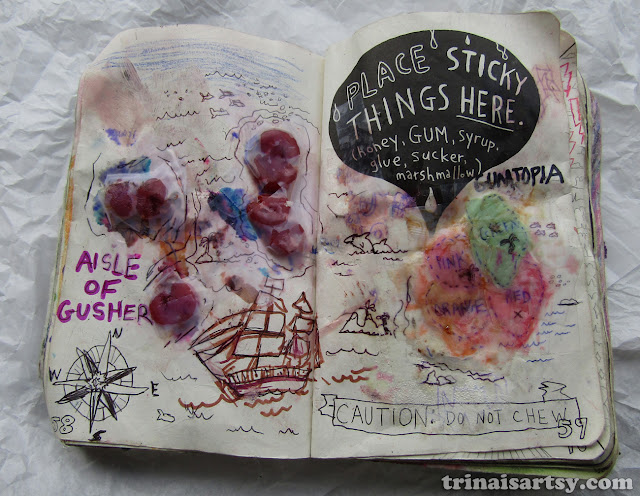 AISLE
OF
GUSHER
N
E
S
58
PLACE STICKY
THINGS HERE.
(honey, GUM, syrup,
glue, sucker,
marshmallow)
GUMTOPIA
PINK
RED
ORANGE
CAUTION: DO NOT CHEW
59
trinaisartsy.com